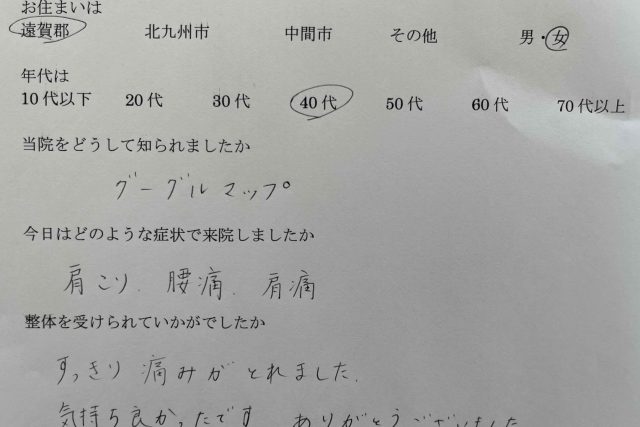 お住まいは
遠賀郡 北九州市 中間市 その他 男・女
年代は
10代以下 20代 30代 40代 50代 60代 70代以上
当院をどうして知られましたか
グーグルマップ
今日はどのような症状で来院しましたか
肩こり、腰痛、肩痛
整体を受けられていかがでしたか
すっきり痛みがとれました。
気持ち良かったです ありがとうございました